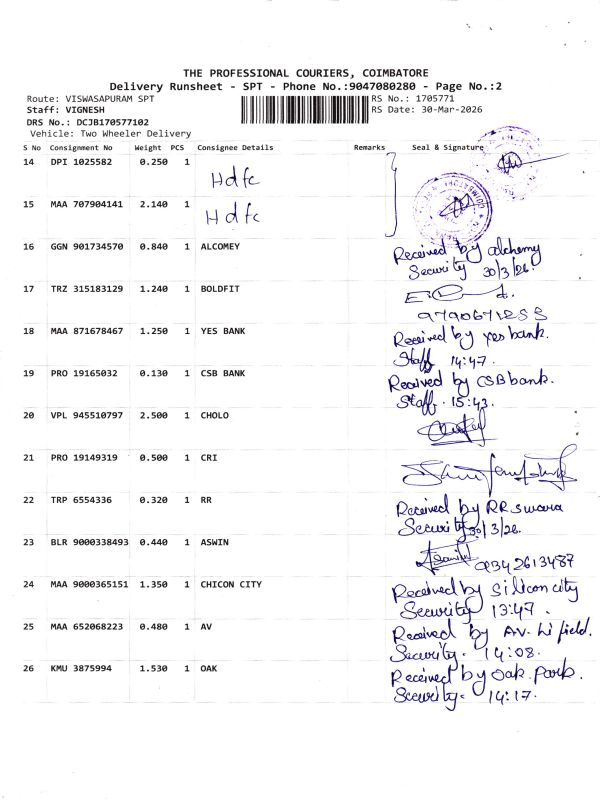 THE PROFESSIONAL COURIERS, COIMBATORE
Delivery Runsheet - SPT - Phone No.:9047080280 - Page No.:2
Route: VISWASAPURAM SPT
RS No.: 1705771
Staff: VIGNESH
RS Date: 30-Mar-2026
DRS No.: DCJB170577102
Vehicle: Two Wheeler Delivery
S No Consignment No Weight PCS Consignee Details Remarks Seal & Signature
14 DPI 1025582 0.250 1 Hdfc
15 MAA 707904141 2.140 1 Hdfc
16 GGN 901734570 0.840 1 ALCOMEY Received by alchemy
Security 30/3/26.
17 TRZ 315183129 1.240 1 BOLDFIT
9790671253
18 MAA 871678467 1.250 1 YES BANK Received by yes bank.
Staff 14:47.
19 PRO 19165032 0.130 1 CSB BANK Received by CSB bank.
Staff. 15:43.
20 VPL 945510797 2.500 1 CHOLO
21 PRO 19149319 0.500 1 CRI
22 TRP 6554336 0.320 1 RR Received by RR swara
Security 30/3/26.
23 BLR 9000338493 0.440 1 ASWIN 9342613487
24 MAA 9000365151 1.350 1 CHICON CITY Received by Silicon city
Security 13:47.
25 MAA 652068223 0.480 1 AV Received by A.V. hi field.
Security. 14:08.
26 KMU 3875994 1.530 1 OAK Received by Oak Park.
Security. 14:17.